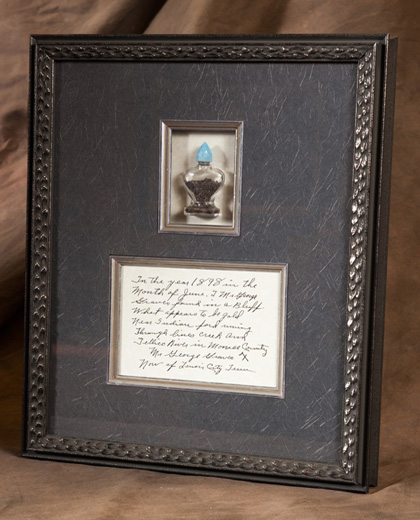 In the year 1898 in the
Month of June. I Mr George
Graves found in a Bluff
What appears to be gold
Near Indian ford
Through lines Creek And
Tellico River in Monroe County
Mr George Graves X
Now of City Tenn